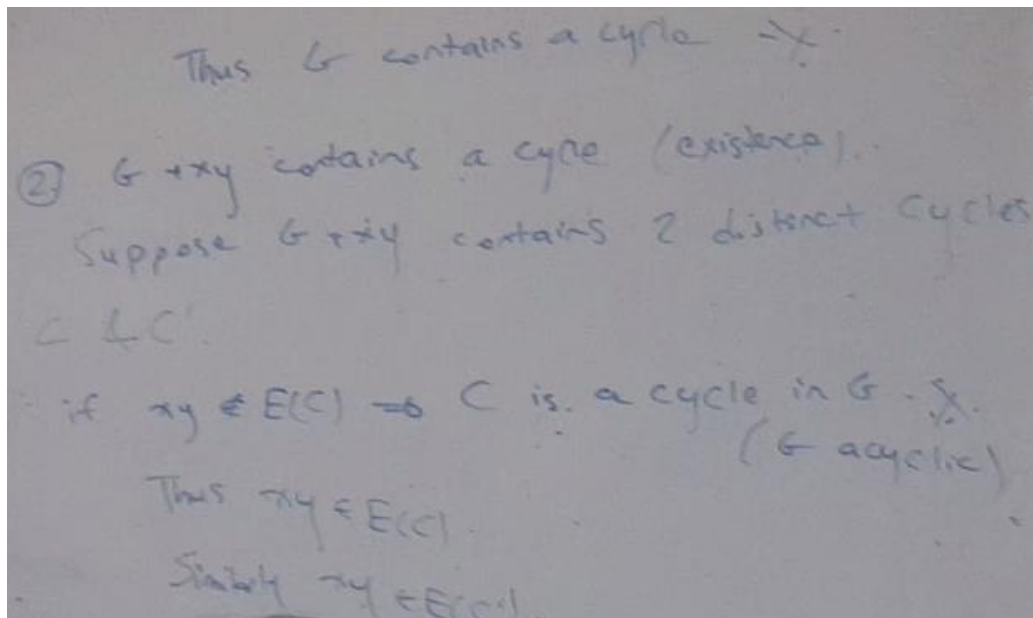 Thus G contains a cycle -X-
② G+xy contains a cycle (existence).
Suppose G+xy contains 2 distinct cycles
C & C'.
if xy ∉ E(C) ⇒ C is a cycle in G. X.
(G acyclic)
Thus xy ∈ E(C).
Similarly xy ∈ E(C').